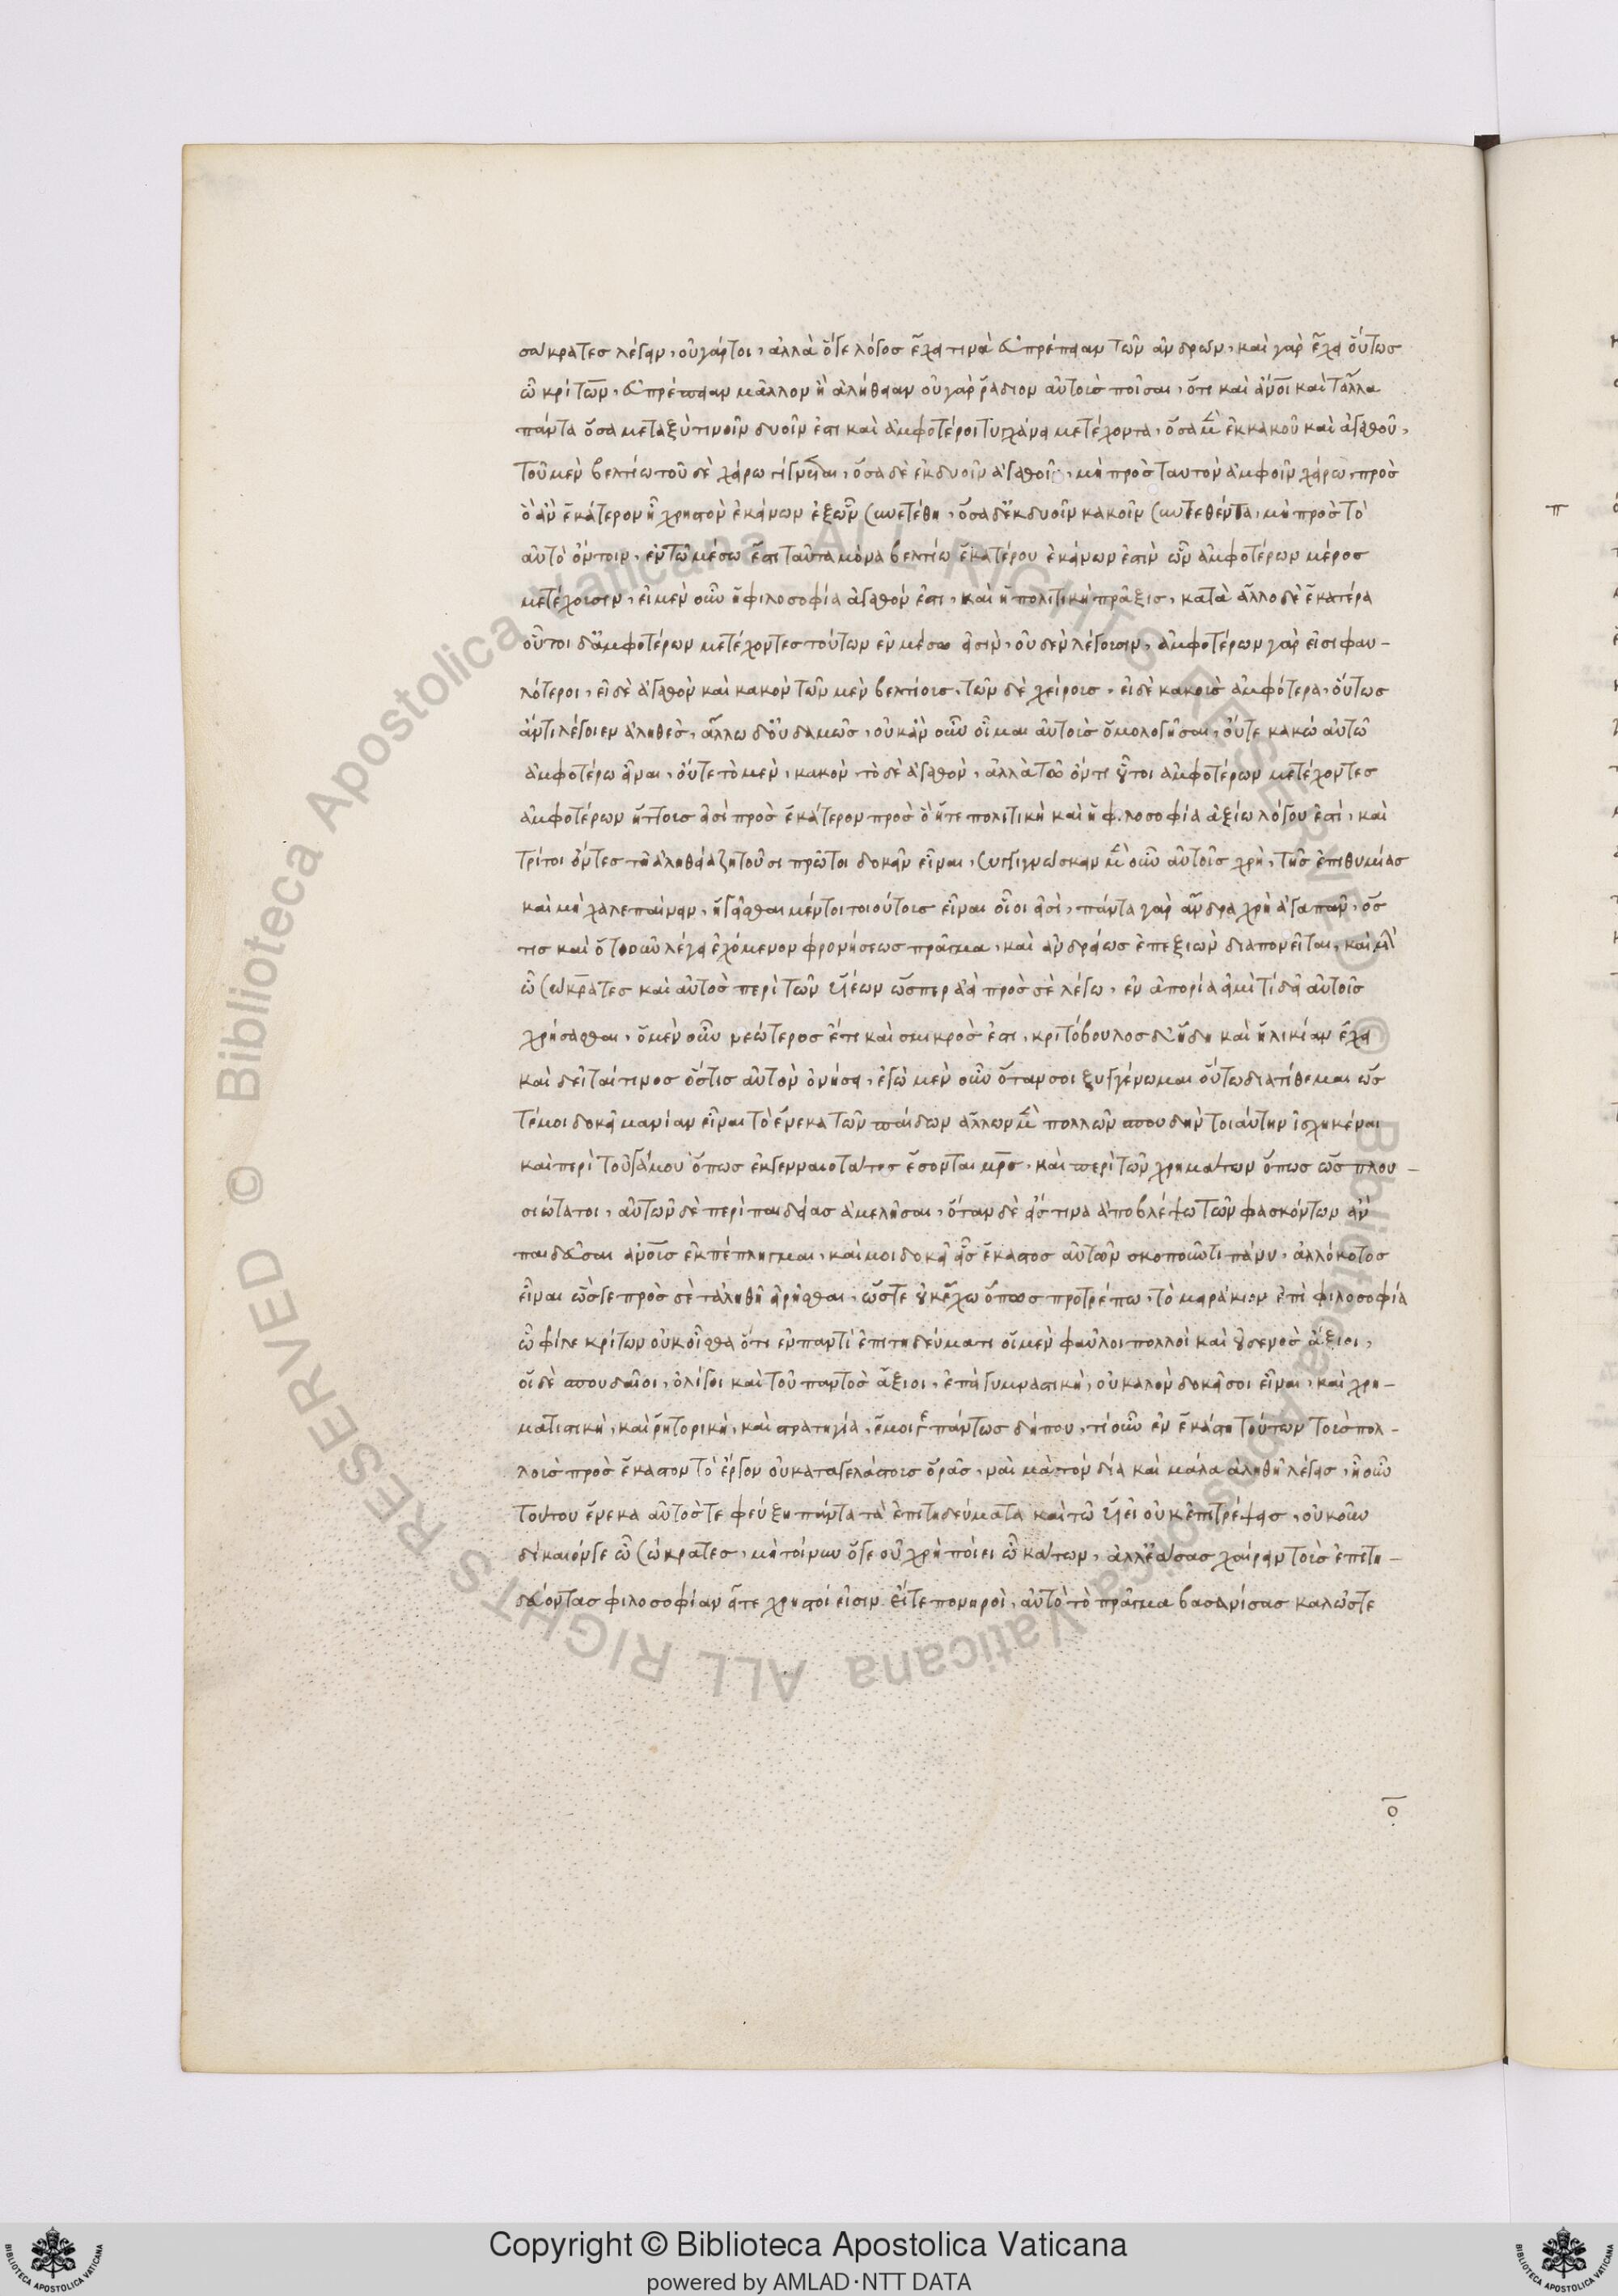 σώκρατες λέγειν, οὐ γάρ τοι, ἀλλὰ ὅγε λόγος ἔχει τινὰ εὐπρέπειαν τῶν ἀνδρῶν, καὶ γὰρ ἔχει οὕτως
ὦ κρίτων, εὐπρέπειαν μᾶλλον ἢ ἀλήθειαν οὐ γὰρ ῥάδιον αὐτοὺς πεῖσαι, ὅτι καὶ ἄνοι καὶ τἆλλα
πάντα ὅσα μεταξύ τινοιν δυοῖν ἐστι καὶ ἀμφοτέροι τυγχάνει μετέχοντα, ὅσα μὲν ἐκ κακοῦ καὶ ἀγαθοῦ,
τοῦ μὲν βελτίω τοῦ δὲ χείρω γίγνεται, ὅσα δὲ ἐκ δυοῖν ἀγαθοῖν, μὴ πρὸς ταυτὸν ἀμφοῖν χείρω, πρὸς
ὃ ἂν ἑκάτερον ᾖ χρηστὸν ἐκείνων ἐξ ὧν συνετέθη, ὅσα δ' ἐκ δυοῖν κακοῖν συντεθέντα, μὴ πρὸς τὸ
αὐτὸ ὄντοιν, ἐν τῷ μέσω ἐστι ταῦτα μόνα βελτίω ἑκατέρου ἐκείνων ἐστὶν ὧν ἀμφοτέρων μέρος
μετέχουσιν, εἰ μὲν οὖν ἡ φιλοσοφία ἀγαθόν ἐστι, καὶ ἡ πολιτικὴ πρᾶξις, κατὰ ἄλλο δὲ ἑκατέρα
οὗτοι δ' ἀμφοτέρων μετέχοντες τούτων ἐν μέσω εἰσὶν, οὐδὲν λέγουσιν, ἀμφοτέρων γάρ εἰσι φαυ-
λότεροι, εἰ δὲ ἀγαθὸν καὶ κακὸν τῶν μὲν βελτίους, τῶν δὲ χείρους, εἰ δὲ κακοὶς ἀμφότερα, οὕτως
ἄν τι λέγοιεν ἀληθὲς, ἄλλω δ' οὐδαμῶς, οὐκ ἂν οὖν οἶμαι αὐτοὺς ὁμολογῆσαι, οὔτε κακὼ αὐτῶ
ἀμφοτέρω εἶναι, οὔτε τὸ μὲν, κακὸν, τὸ δὲ ἀγαθὸν, ἀλλὰ τῶ ὄντι οὗτοι ἀμφοτέρων μετέχοντες
ἀμφοτέρων ἥττους εἰσὶ πρὸς ἑκάτερον πρὸς ὃ ἥτε πολιτικὴ καὶ ἡ φιλοσοφία ἀξίω λόγου ἐστὶ, καὶ
τρίτοι ὄντες τῇ ἀληθείᾳ ζητοῦσι πρῶτοι δοκεῖν εἶναι, συγγιγνώσκειν μὲν οὖν αὐτοῖς χρὴ, τῆς ἐπιθυμίας
καὶ μὴ χαλεπαίνειν, ἡγεῖσθαι μέντοι τοιούτους εἶναι οἷοι εἰσὶ, πάντα γὰρ ἄνδρα χρὴ ἀγαπᾶν, ὅς
τις καὶ ὁτιοῦν λέγει ἐχόμενον φρονήσεως πρᾶγμα, καὶ ἀνδρείως ἐπεξιὼν διαπονεῖται, καὶ μὴν
ὦ σώκρατες καὶ αὐτὸς περὶ τῶν υἱέων ὥσπερ ἀεὶ πρὸς σὲ λέγω, ἐν ἀπορία εἰμὶ τί δεῖ αὐτοῖς
χρήσασθαι, ὁ μὲν οὖν νεώτερος ἔτι καὶ σμικρὸς ἐστι, κριτόβουλος δ' ἤδη καὶ ἡλικίαν ἔχει
καὶ δεῖταί τινος ὅστις αὐτὸν ὀνήσει, ἐγὼ μὲν οὖν ὅταν σοι ξυγγένωμαι οὕτω διατίθεμαι ὥς
τέ μοι δοκεῖ μανίαν εἶναι τὸ ἕνεκα τῶν παίδων ἄλλων μὲν πολλῶν σπουδὴν τοιαύτην ἰσχηκέναι
καὶ περὶ τοῦ γάμου ὅπως ἐκ γενναιοτάτης ἔσονται μρς, καὶ περὶ τῶν χρημάτων ὅπως ὡς πλου-
σιώτατοι, αὐτῶν δὲ περὶ παιδείας ἀμελῆσαι, ὅταν δὲ εἴς τινα ἀποβλέψω τῶν φασκόντων ἂν
παιδεῦσαι ἀνοὺς ἐκπέπληγμαι, καί μοι δοκεῖ εἷς ἕκαστος αὐτῶν σκοποῦντι πάνυ, ἀλλόκοτος
εἶναι ὥς γε πρὸς σὲ τἀληθῆ εἰρῆσθαι, ὥστε οὐκ ἔχω ὅπως προτρέπω, τὸ μειράκιον ἐπὶ φιλοσοφία
ὦ φίλε κρίτων οὐκ οἶσθα ὅτι ἐν παντὶ ἐπιτηδεύματι οἱ μὲν φαῦλοι πολλοὶ καὶ οὐδενὸς ἄξιοι,
οἱ δὲ σπουδαῖοι, ὀλίγοι καὶ τοῦ παντὸς ἄξιοι, ἐπεὶ γυμναστικὴ, οὐ καλὸν δοκεῖ σοι εἶναι, καὶ χρη-
ματιστικὴ, καὶ ῥητορικὴ, καὶ στρατηγία, ἔμοιγε πάντως δήπου, τί οὖν ἐν ἑκάστη τούτων τοὺς πολ-
λοὺς πρὸς ἕκαστον τὸ ἔργον οὐ καταγελάστους ὁρᾶς, ναὶ μὰ τὸν δία καὶ μάλα ἀληθῆ λέγεις, ἦ οὖν
τούτου ἕνεκα αὐτός τε φεύξη πάντα τὰ ἐπιτηδεύματα καὶ τῶ υἱεῖ οὐκ ἐπιτρέψεις, οὔκουν
δίκαιόν γε ὦ σώκρατες, μὴ τοίνυν ὅγε οὐ χρὴ ποίει ὦ κρίτων, ἀλλ' ἐάσας χαίρειν τοὺς ἐπιτη-
δεύοντας φιλοσοφίαν εἴτε χρηστοί εἰσιν εἴτε πονηροὶ, αὐτὸ τὸ πρᾶγμα βασανίσας καλῶς τε
ο